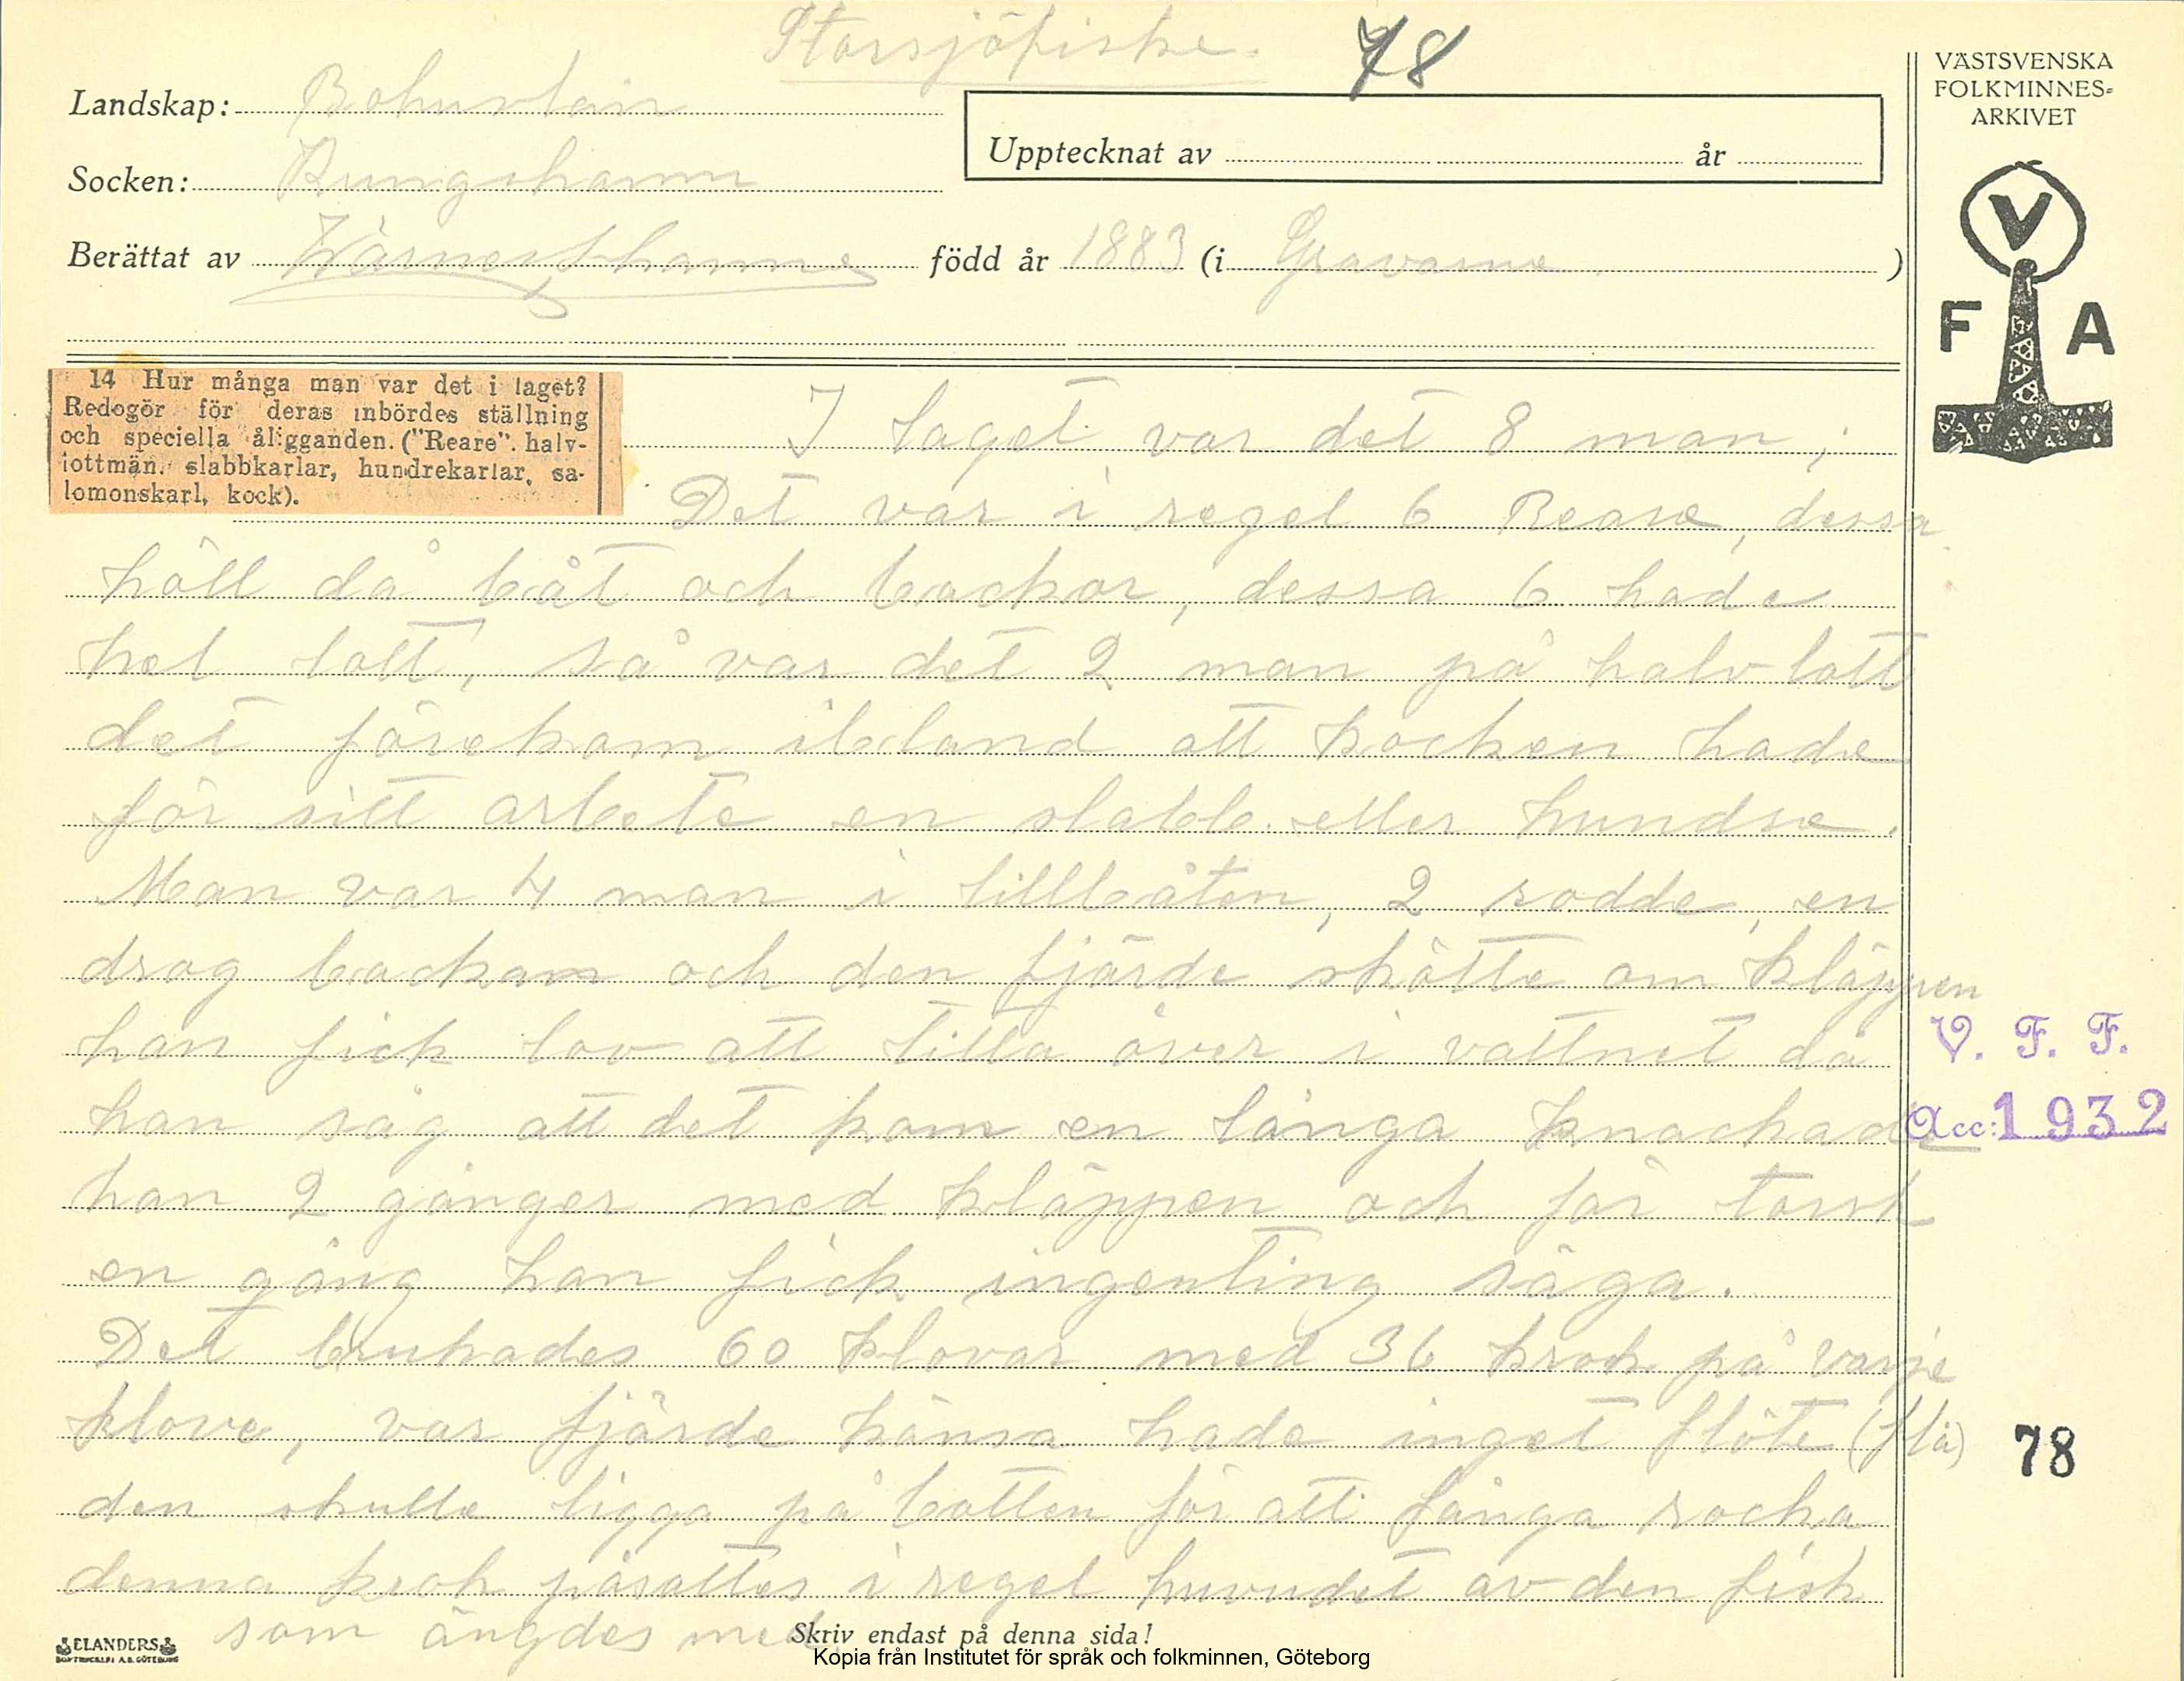 Storsjöfiske.
78
VÄSTSVENSKA
FOLKMINNES=
ARKIVET
Landskap: Bohuslän
Upptecknat av år
Socken: Kungshamn
Berättat av född år 1883 (i Gravarne )
V
F A
14 Hur många man var det i laget?
Redogör för deras inbördes ställning
och speciella åligganden. ("Reare". halv-
lottmän. slabbkarlar, hundrekarlar, sa-
lomonskarl, kock).
I laget var det 8 man;
Det var i regel 6 Reare, dessa
höll då båt och backor, dessa 6 hade
hel lott, så var det 2 man på halv lott
det förekom ibland att kocken hade
för sitt arbete en slabb eller hundre.
Man var 4 man i lillbåten, 2 rodde, en
drog backan och den fjärde skötte om kläppen
han fick lov att titta över i vattnet då
han såg att det kom en långa knackade
han 2 gånger med kläppen och för torsk
en gång han fick ingenting säga.
Det brukades 60 klovar med 36 krok på varje
klove, var fjärde tänsa hade inget flöte (flå)
den skulle ligga på botten för att fånga rocka
denna krok påsattes i regel huvudet av den fisk
som ängdes med
V. F. F.
Acc: 1932
78
ELANDERS
BOKTRYCKERI A.B. GÖTEBORG
Skriv endast på denna sida!
Kopia från Institutet för språk och folkminnen, Göteborg